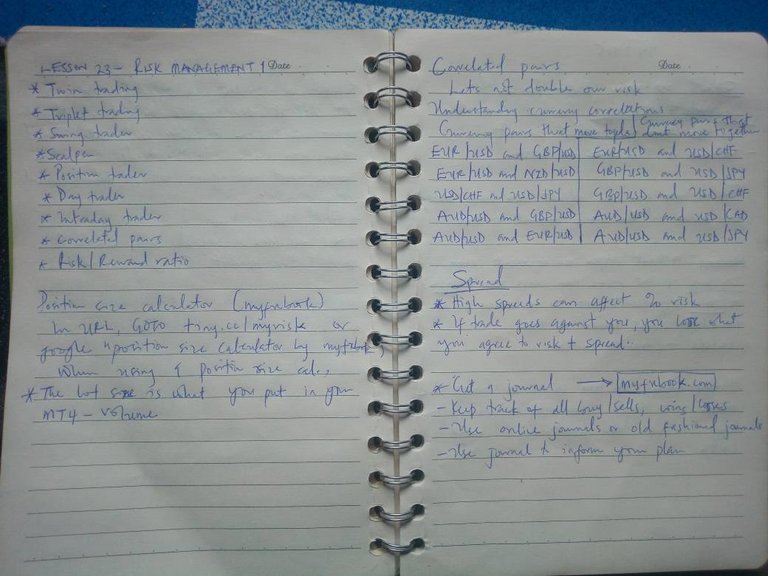 LESSON 23 - RISK MANAGEMENT 1 Date
* Twin trading
* Triplet trading
* Swing trader
* Scalper
* Position trader
* Day trader
* Intraday trader
* Correlated pairs
* Risk/Reward ratio
Position size calculator (myfxbook)
In URL, GOTO tiny.cc/myrisk or
google "position size calculator by myfxbook,
When using position size cal.,
* The lot size is what you put in your
MT4 - volume
Correlated pairs Date
Lets not double our risk
Understanding currency correlations
Currency pairs that move together | Currency pairs that dont move together
EUR/USD and GBP/USD | EUR/USD and USD/CHF
EUR/USD and NZD/USD | GBP/USD and USD/JPY
USD/CHF and USD/JPY | GBP/USD and USD/CHF
AUD/USD and GBP/USD | AUD/USD and USD/CAD
AUD/USD and EUR/USD | AUD/USD and USD/JPY
Spread
* High spreads can affect % risk
* If trade goes against you, you lose what
you agree to risk + spread..
* Get a journal → myfxbook.com
- Keep track of all buy/sells, wins/losses
- Use online journals or old fashioned journals
- Use journal to inform your plan